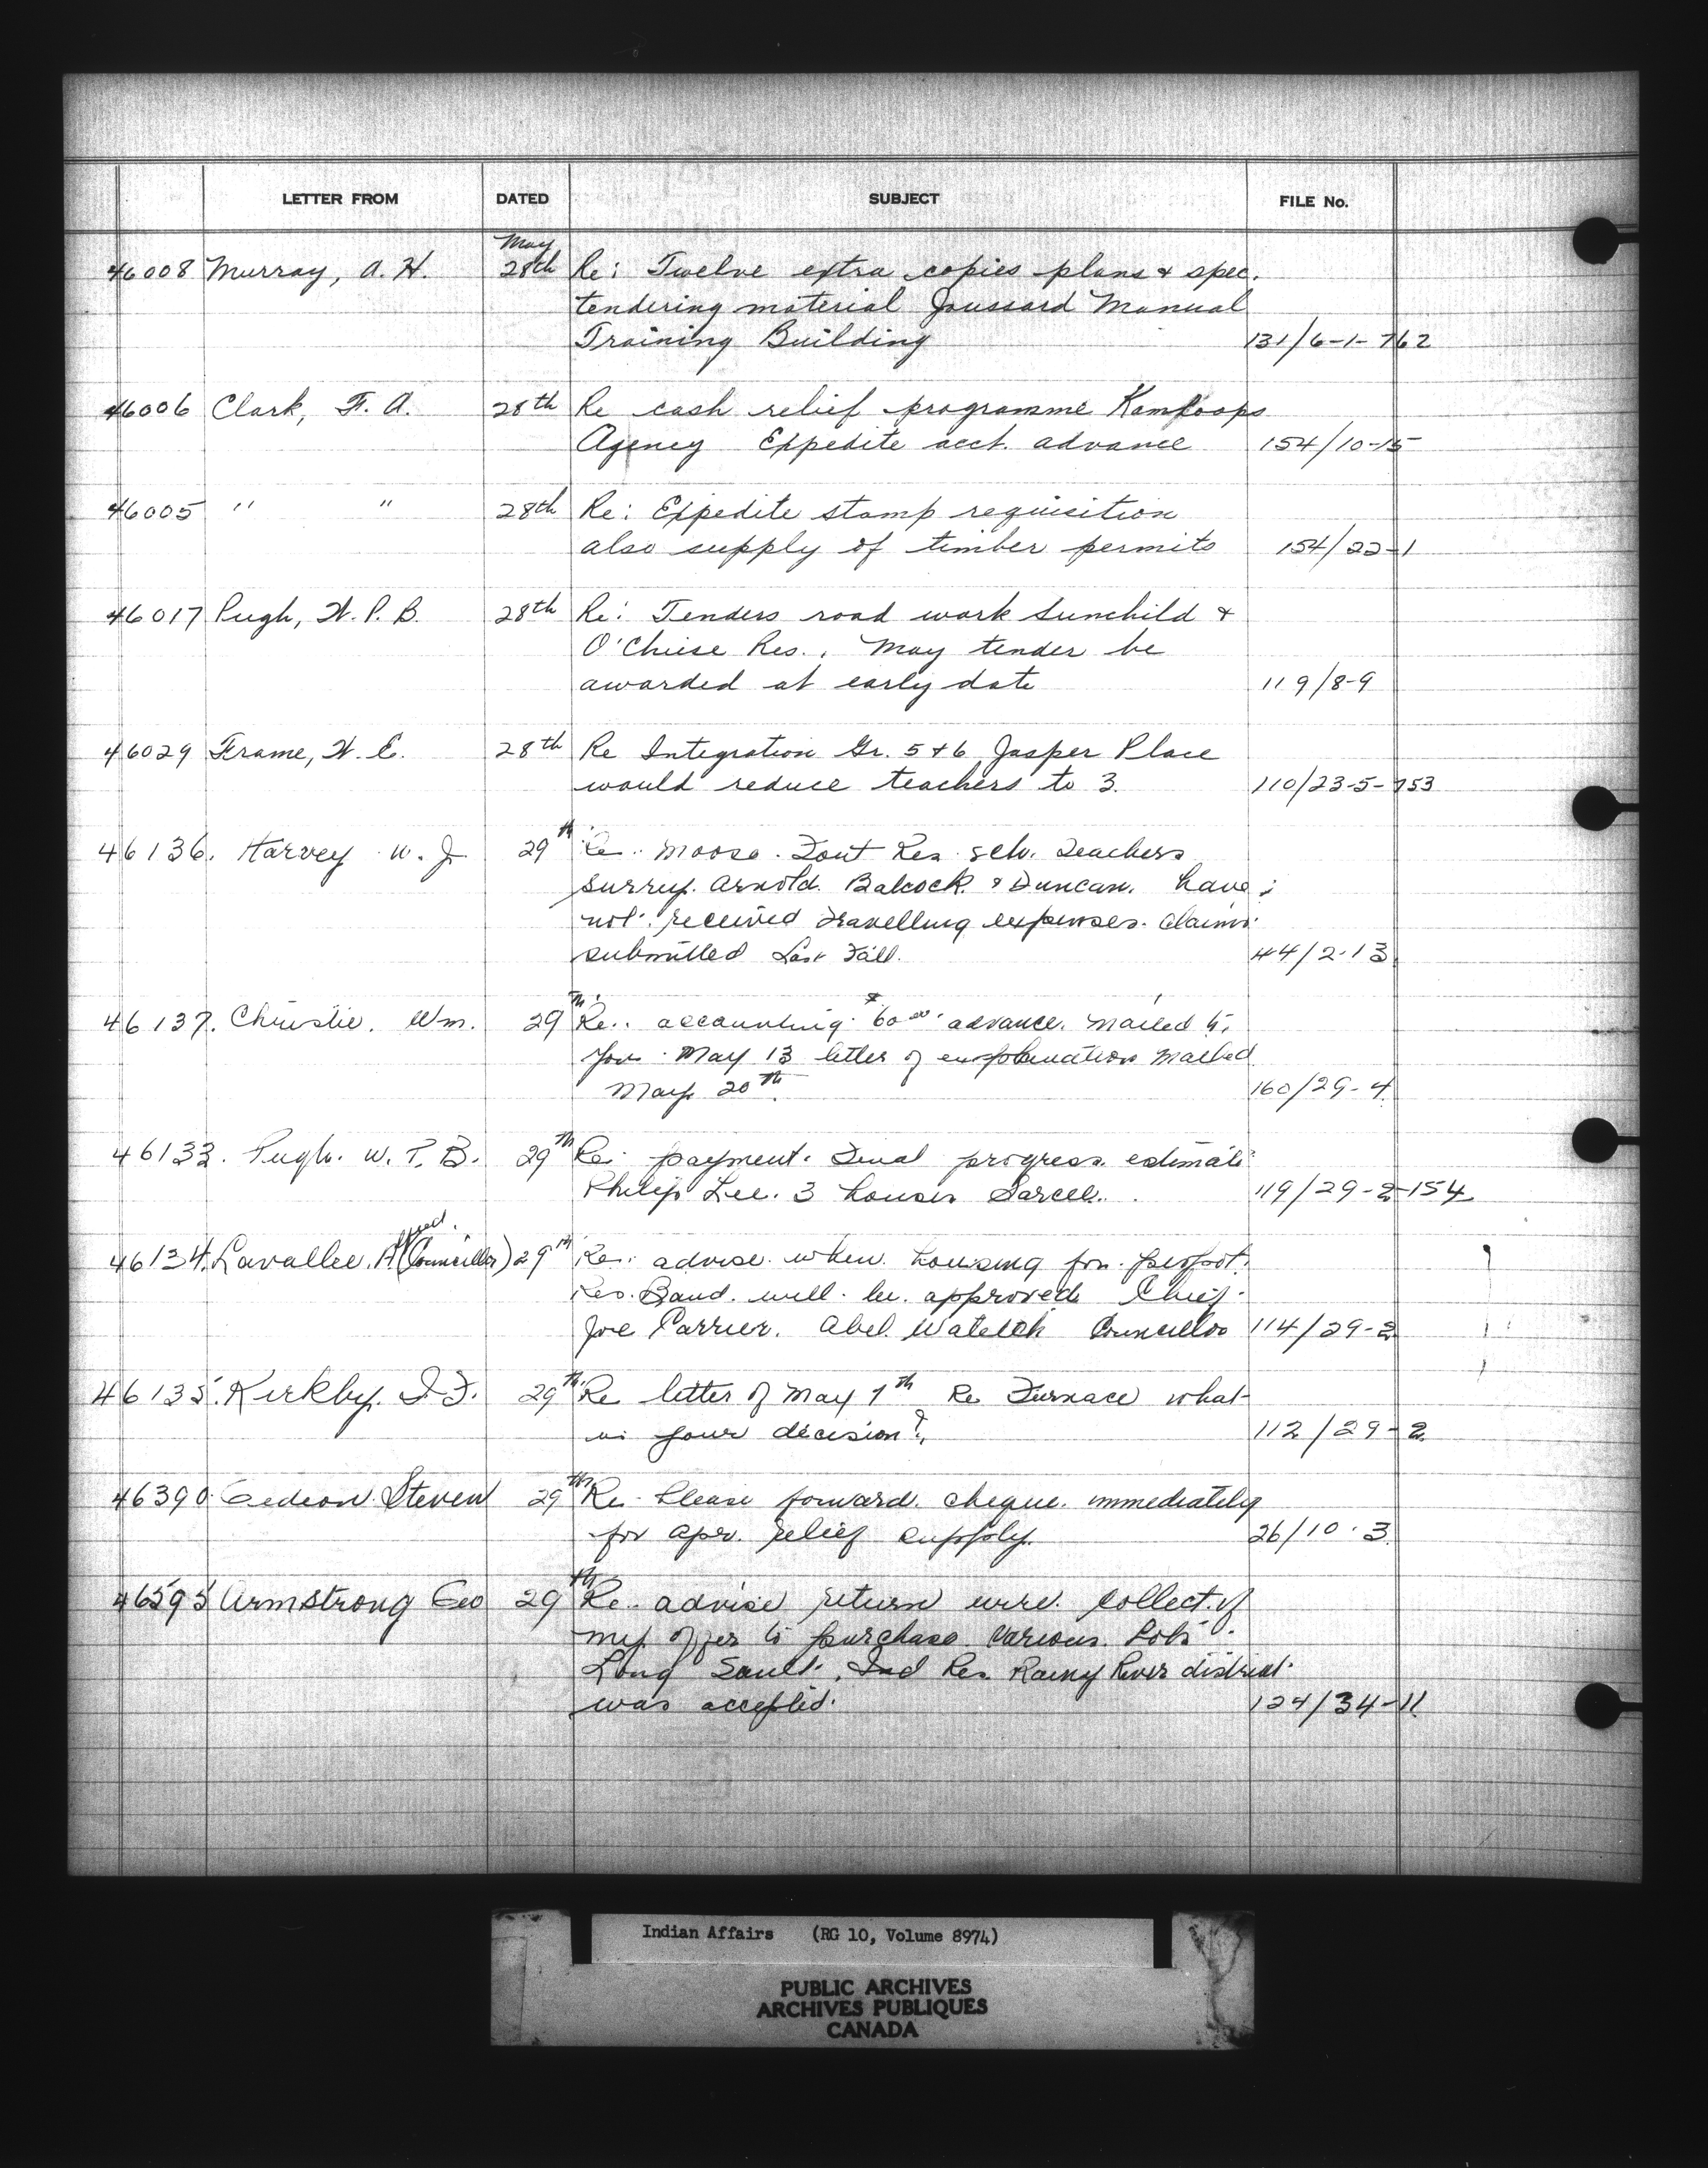 LETTER FROM DATED SUBJECT FILE No.
May
46008 Murray, A. H. 28th Re: Twelve extra copies plans & spec.
tendering material Joussard Manual
Training Building 131/6-1-762
46006 Clark, F. A. 28th Re cash relief programme Kamloops
Agency Expedite acct. advance 154/10-15
46005 " " 28th Re: Expedite stamp requisition
also supply of timber permits 154/22-1
46017 Pugh, W. P. B. 28th Re: Tenders road work Sunchild &
O'Chiese Res., May tender be
awarded at early date 119/8-9
46029 Frame, W. E. 28th Re Integration Gr. 5 & 6 Jasper Place
would reduce teachers to 3. 110/23-5-753
46136. Harvey W. J. 29th Re: Moose Fort Res. Sch. Teachers
Surrey. Arnold. Babcock. & Duncan. have
not received travelling expenses. claims
submitted Last Fall. 44/2-13
46137. Christie. Wm. 29th Re: accounting $60.00 advance. mailed to
you May 13 letter of explanation mailed
May 20th. 160/29-4
46133. Pugh. W. P. B. 29th Re: payment. Final progress estimate
Philip Lee. 3 houses Sarcee. 119/29-2-154
46134. Lavallee. A (Councillor) 29th Re: advise when housing for
Res. Band. will be approved Chief
Joe Carrier. Abel Watetch Councillor 114/29-2
46135. Kirkby. I. F. 29th Re letter of May 7th Re Furnace what
is your decision? 112/29-2
46390 Gedeon Steven 29th Re Please forward cheque immediately
for Apr. relief supply. 26/10-3
46395 Armstrong Geo 29th Re advise return wire collect if
my offer to purchase various Lots
Long Sault. Ind Res. Rainy River district
was accepted. 124/34-11
Indian Affairs (RG 10, Volume 8974)
PUBLIC ARCHIVES
ARCHIVES PUBLIQUES
CANADA